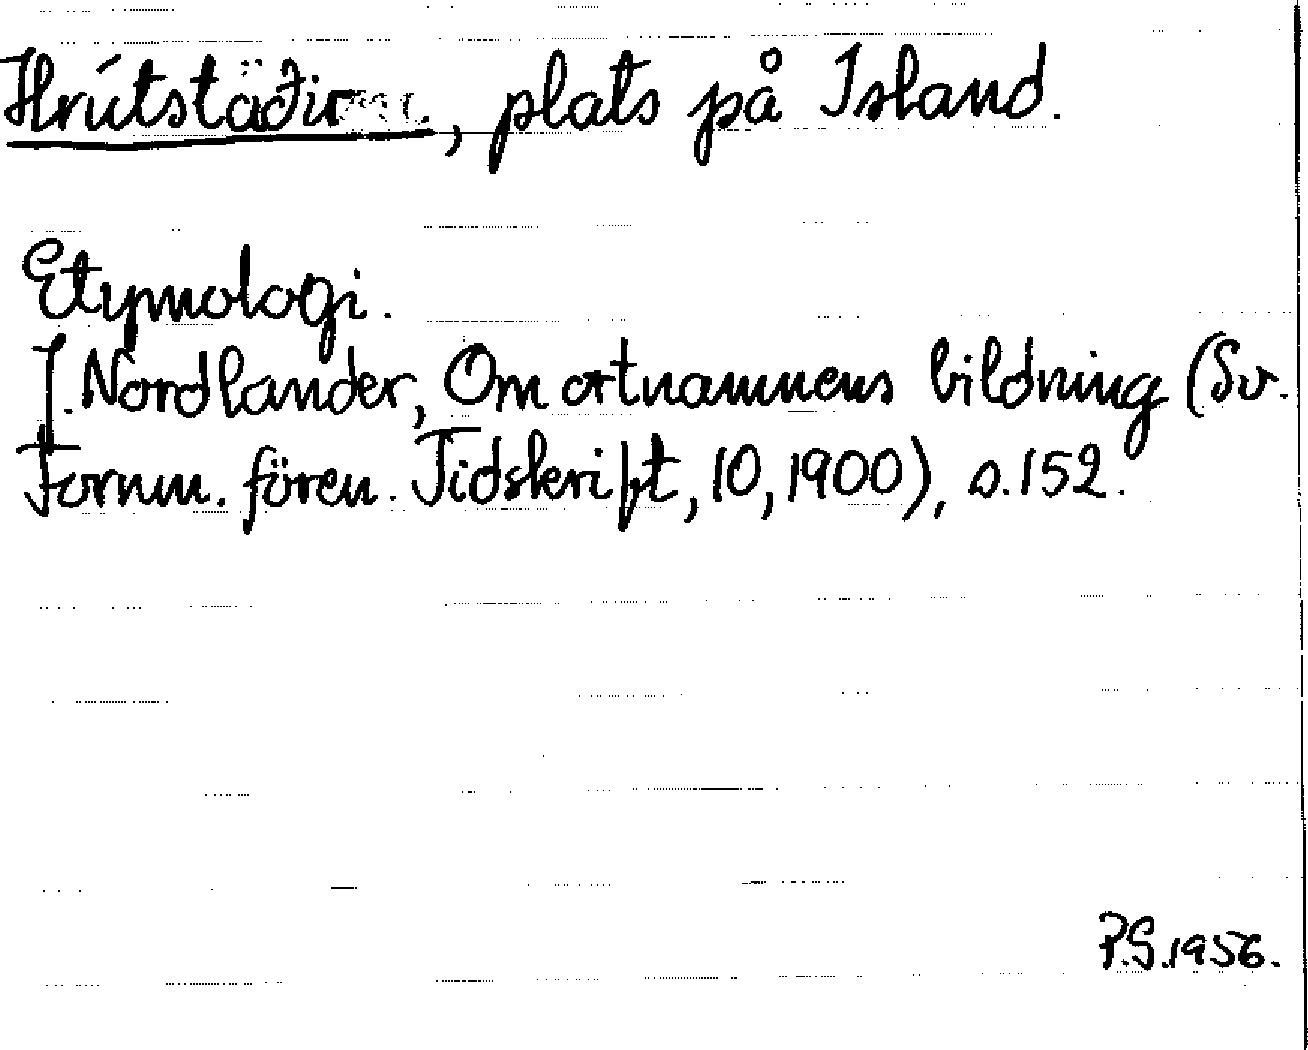 Hrútstaðir, plats på Island.
Etymologi.
J. Nordlander, Om ortnamnens bildning (Sv.
Fornm. fören. Tidskrift, 10, 1900), s. 152.
P.S. 1956.